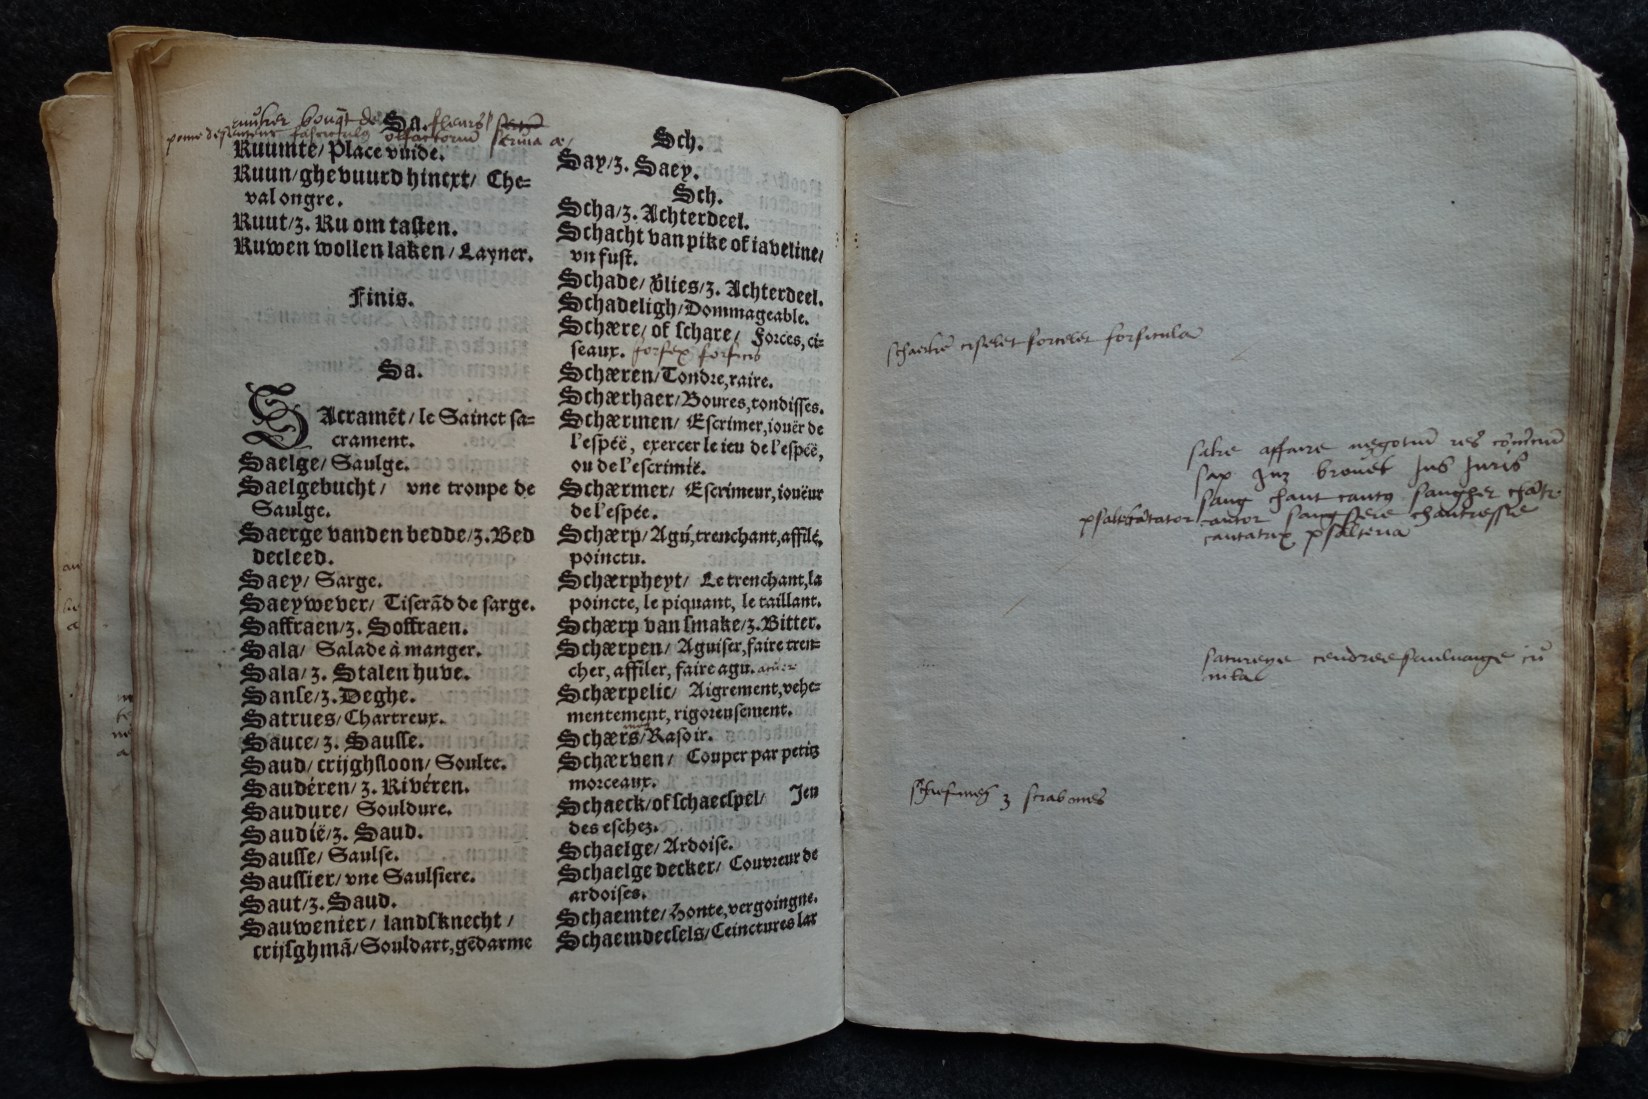 Sa.
Ruumte/ Place vuide.
Ruun/ghevuurd hinxt/ Che=
val ongre.
Ruut/z. Ru om tasten.
Ruwen wollen laken/ Layner.
Finis.
Sa.
SAcramēt/ le Sainct sa=
crament.
Saelge/ Saulge.
Saelgebucht/ vne troupe de
Saulge.
Saerge vanden bedde/z. Bed
decleed.
Saey/ Sarge.
Saeywever/ Tiserād de sarge.
Saffraen/z. Soffraen.
Sala/ Salade à manger.
Sala/ z. Stalen huve.
Sanse/z. Deghe.
Satrues/Chartreux.
Sauce/ z. Sausse.
Saud/ crijghsloon/ Soulte.
Saudéren/ z. Rivéren.
Saudure/ Souldure.
Saudië/z. Saud.
Sausse/ Saulse.
Saussier/ vne Saulsiere.
Saut/z. Saud.
Sauwenier/ landsknecht/
crijsghmā/Souldart,gēdarme
Sch.
Say/z. Saey.
Sch.
Scha/z. Achterdeel.
Schacht van pike of iaveline/
vn fust.
Schade/ Vlies/z. Achterdeel.
Schadeligh/Dommageable.
Schære/ of schare/ Forces, ci=
seaux. forfex forficis
Schæren/Tondre,raire.
Schærhaer/Boures,tondisses.
Schærmen/ Escrimer,iouër de
l'espéë, exercer le ieu de l'espéë,
ou de l'escrimië.
Schærmer/ Escrimeur,iouëur
de l'espée.
Schærp/Agú,trenchant,affilé,
poinctu.
Schærpheyt/ Le trenchant,la
poincte, le piquant, le taillant.
Schærp van smake/z.Bitter.
Schærpen/ Aguiser,faire tren=
cher, affiler, faire agu.
Schærpelic/ Aigrement,vehe=
mentement, rigoreusement.
Schærs/Rasoir.
Schærven/ Couper par petitz
morceaux.
Schaeck/of schaecspel/ Jeu
des eschez.
Schaelge/ Ardoise.
Schaelge decker/ Couvreur de
ardoises.
Schaemte/ Honte,vergoingne.
Schaemdecsels/Ceinctures lar
ciselet forcelet forficula
sake affaire negotiū res
sap Jus brouet Jus Juris
sang chant cantus sangher chātr
cantor sangstere chantresse
cantatrix psalteria
z scrabmes